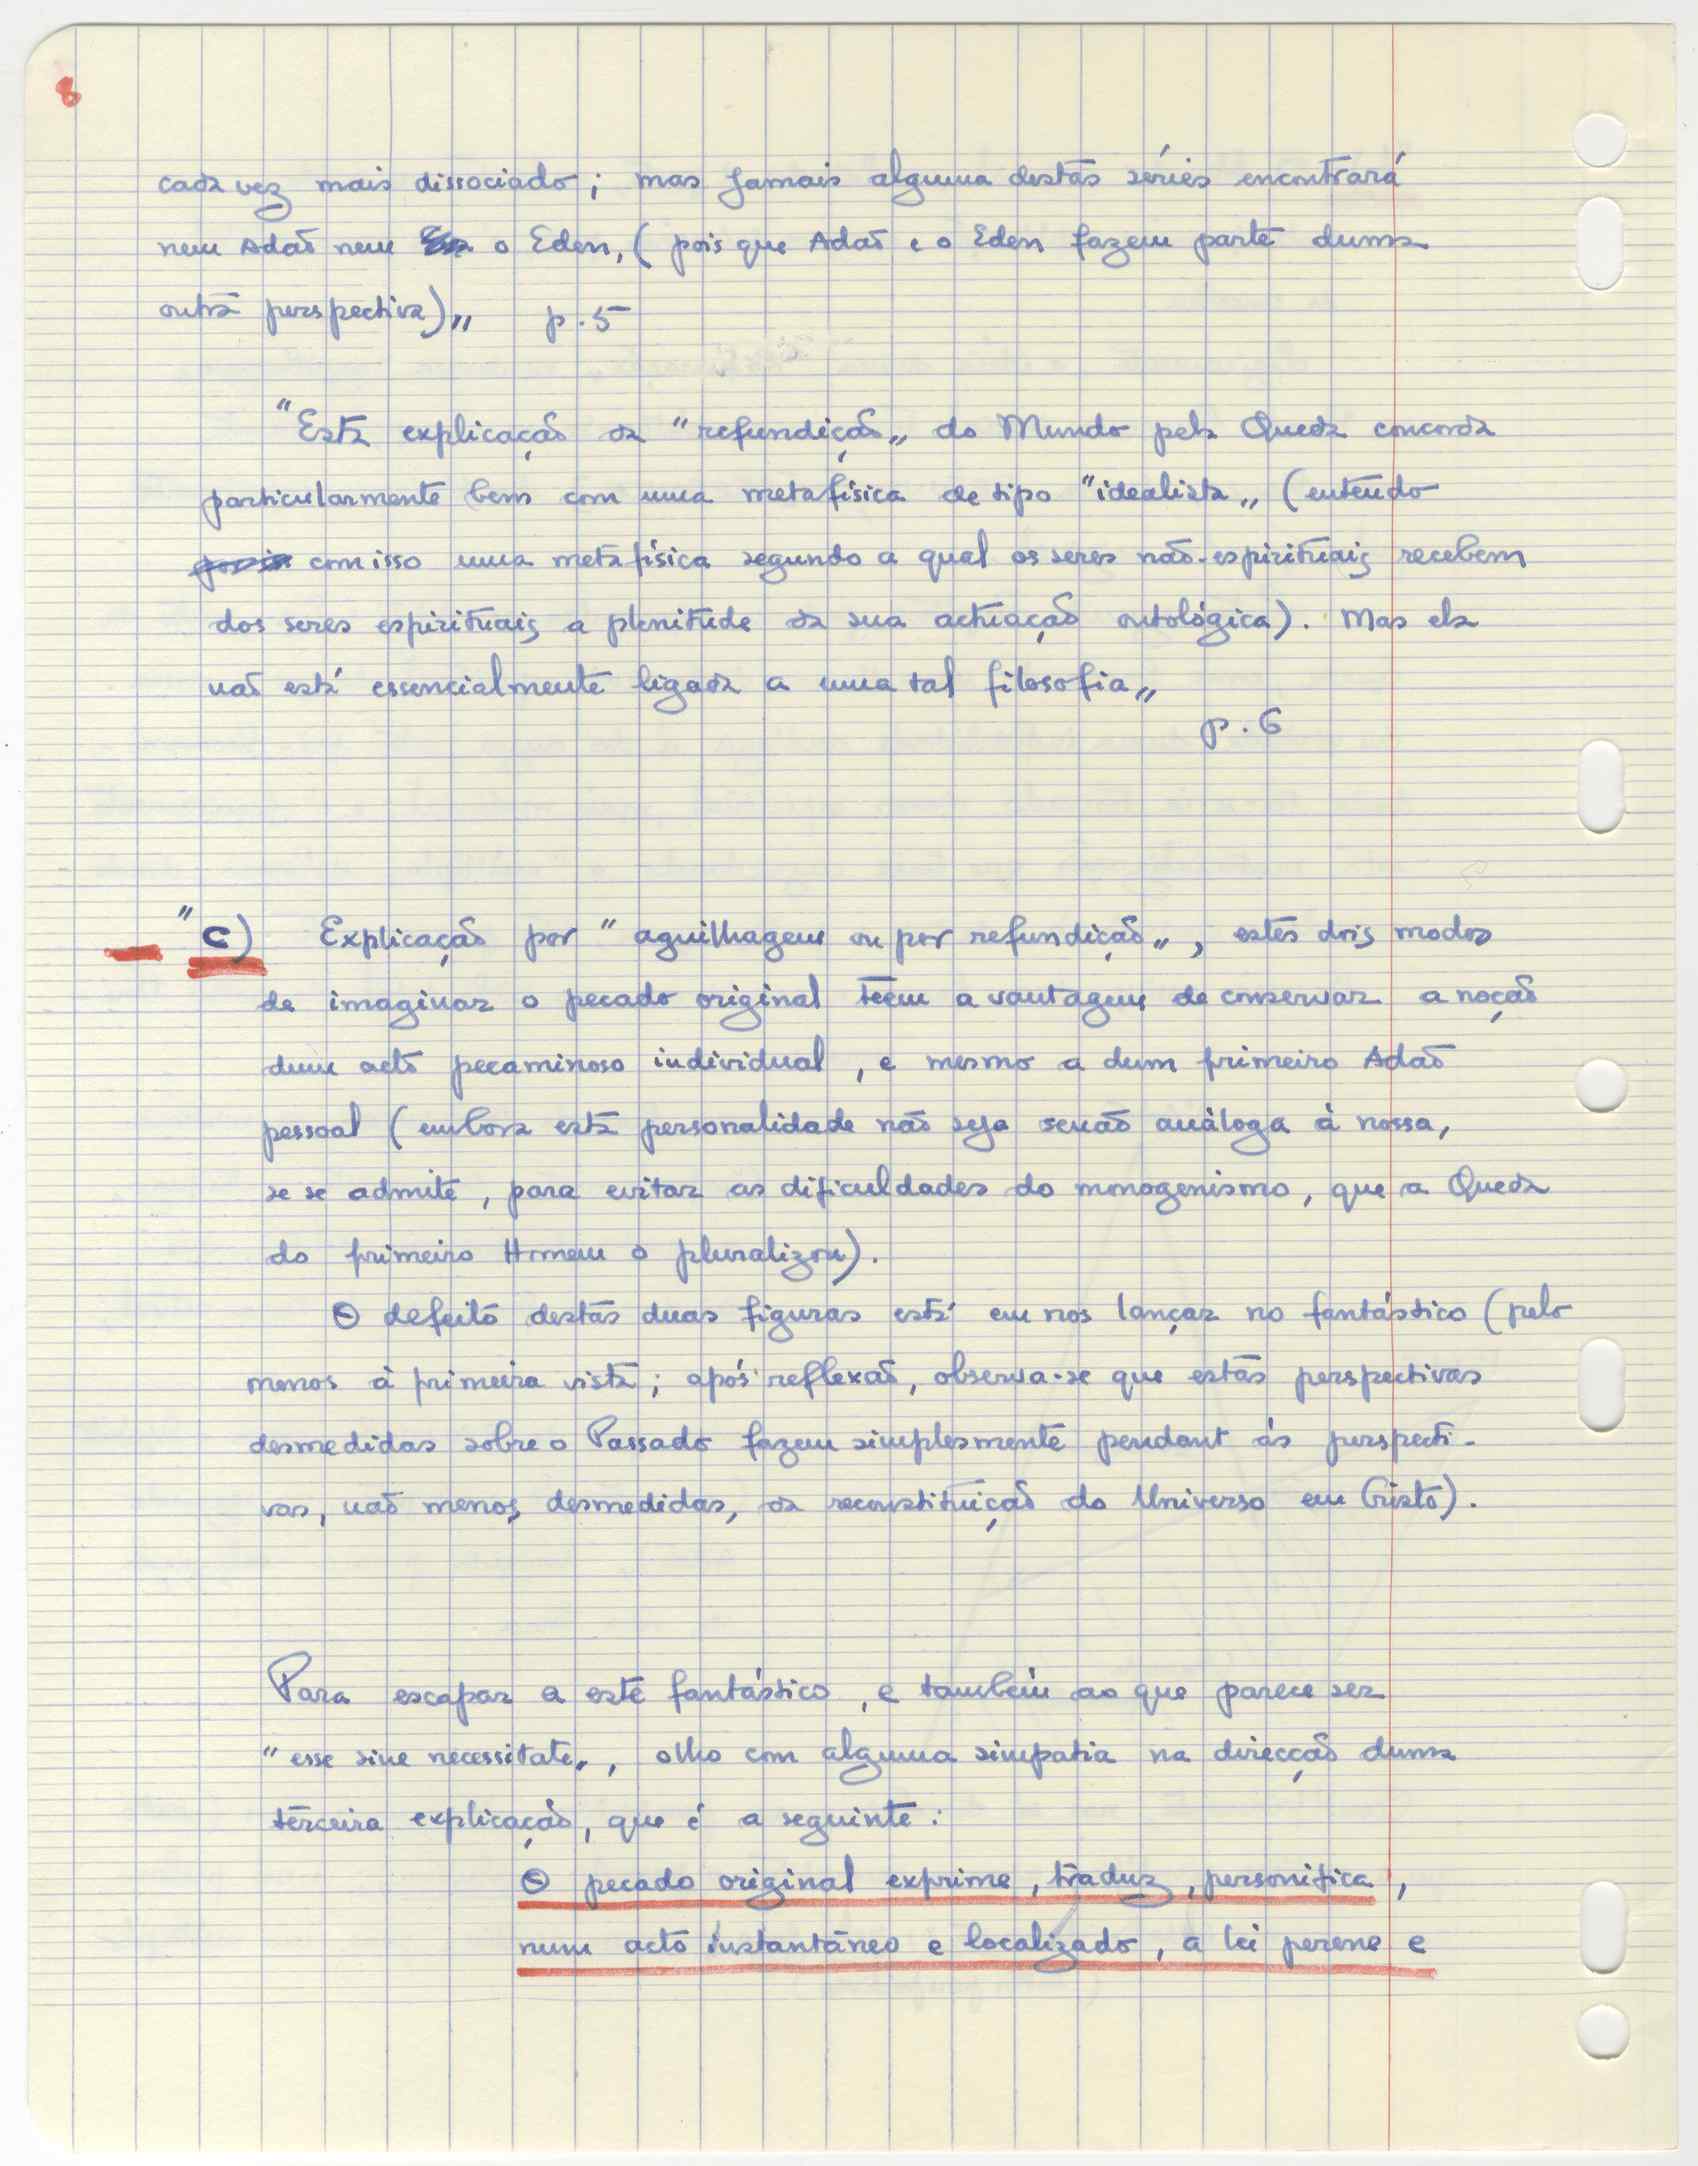 8
cada vez mais dissociado; mas jamais alguma destas séries encontrará
nem Adão nem o Eden, (pois que Adão e o Eden fazem parte duma
outra perspectiva)„ p. 5
"Esta explicação da "refundição„ do Mundo pela Queda concorda
particularmente bem com uma metafísica de tipo "idealista„ (entendo
com isso uma metafísica segundo a qual os seres não-espirituais recebem
dos seres espirituais a plenitude da sua actuação ontológica). Mas ela
não está essencialmente ligada a uma tal filosofia„
p. 6
" c) Explicação por "aguilhagem ou por refundição„, estes dois modos
de imaginar o pecado original têem a vantagem de conservar a noção
dum acto pecaminoso individual, e mesmo a dum primeiro Adão
pessoal (embora esta personalidade não seja senão análoga à nossa,
se se admite, para evitar as dificuldades do monogenismo, que a Queda
do primeiro Homem o pluralizou).
O defeito destas duas figuras está em nos lançar no fantástico (pelo
menos à primeira vista; após reflexão, observa-se que estas perspectivas
desmedidas sobre o Passado fazem simplesmente pendant às perspecti-
vas, não menos desmedidas, da reconstituição do Universo em Cristo).
Para escapar a este fantástico, e também ao que parece ser
"esse sine necessitate„, olho com alguma simpatia na direcção duma
terceira explicação, que é a seguinte:
O pecado original exprime, traduz, personifica,
num acto instantâneo e localizado, a lei perene e